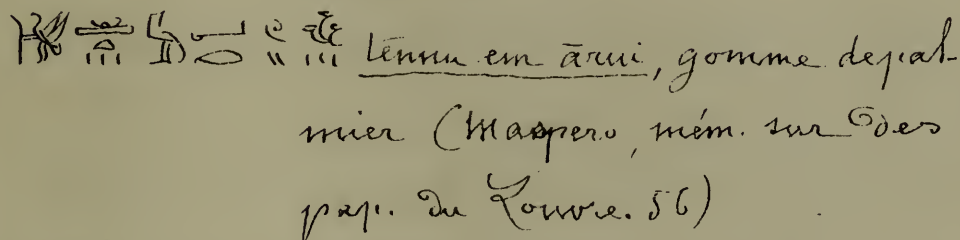 tennu em ārui, gomme depal-
mier (Maspero, mém. sur des
pap. du Louvre. 56)